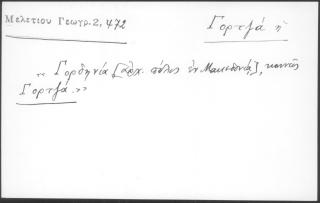 Μελετίου Γεωγρ. 2, 472
Γορτζά ἡ
« Γορδηνία [ἀρχ. πόλις ἐν Μακεδονίᾳ], κοινῶς
Γορτζά. »